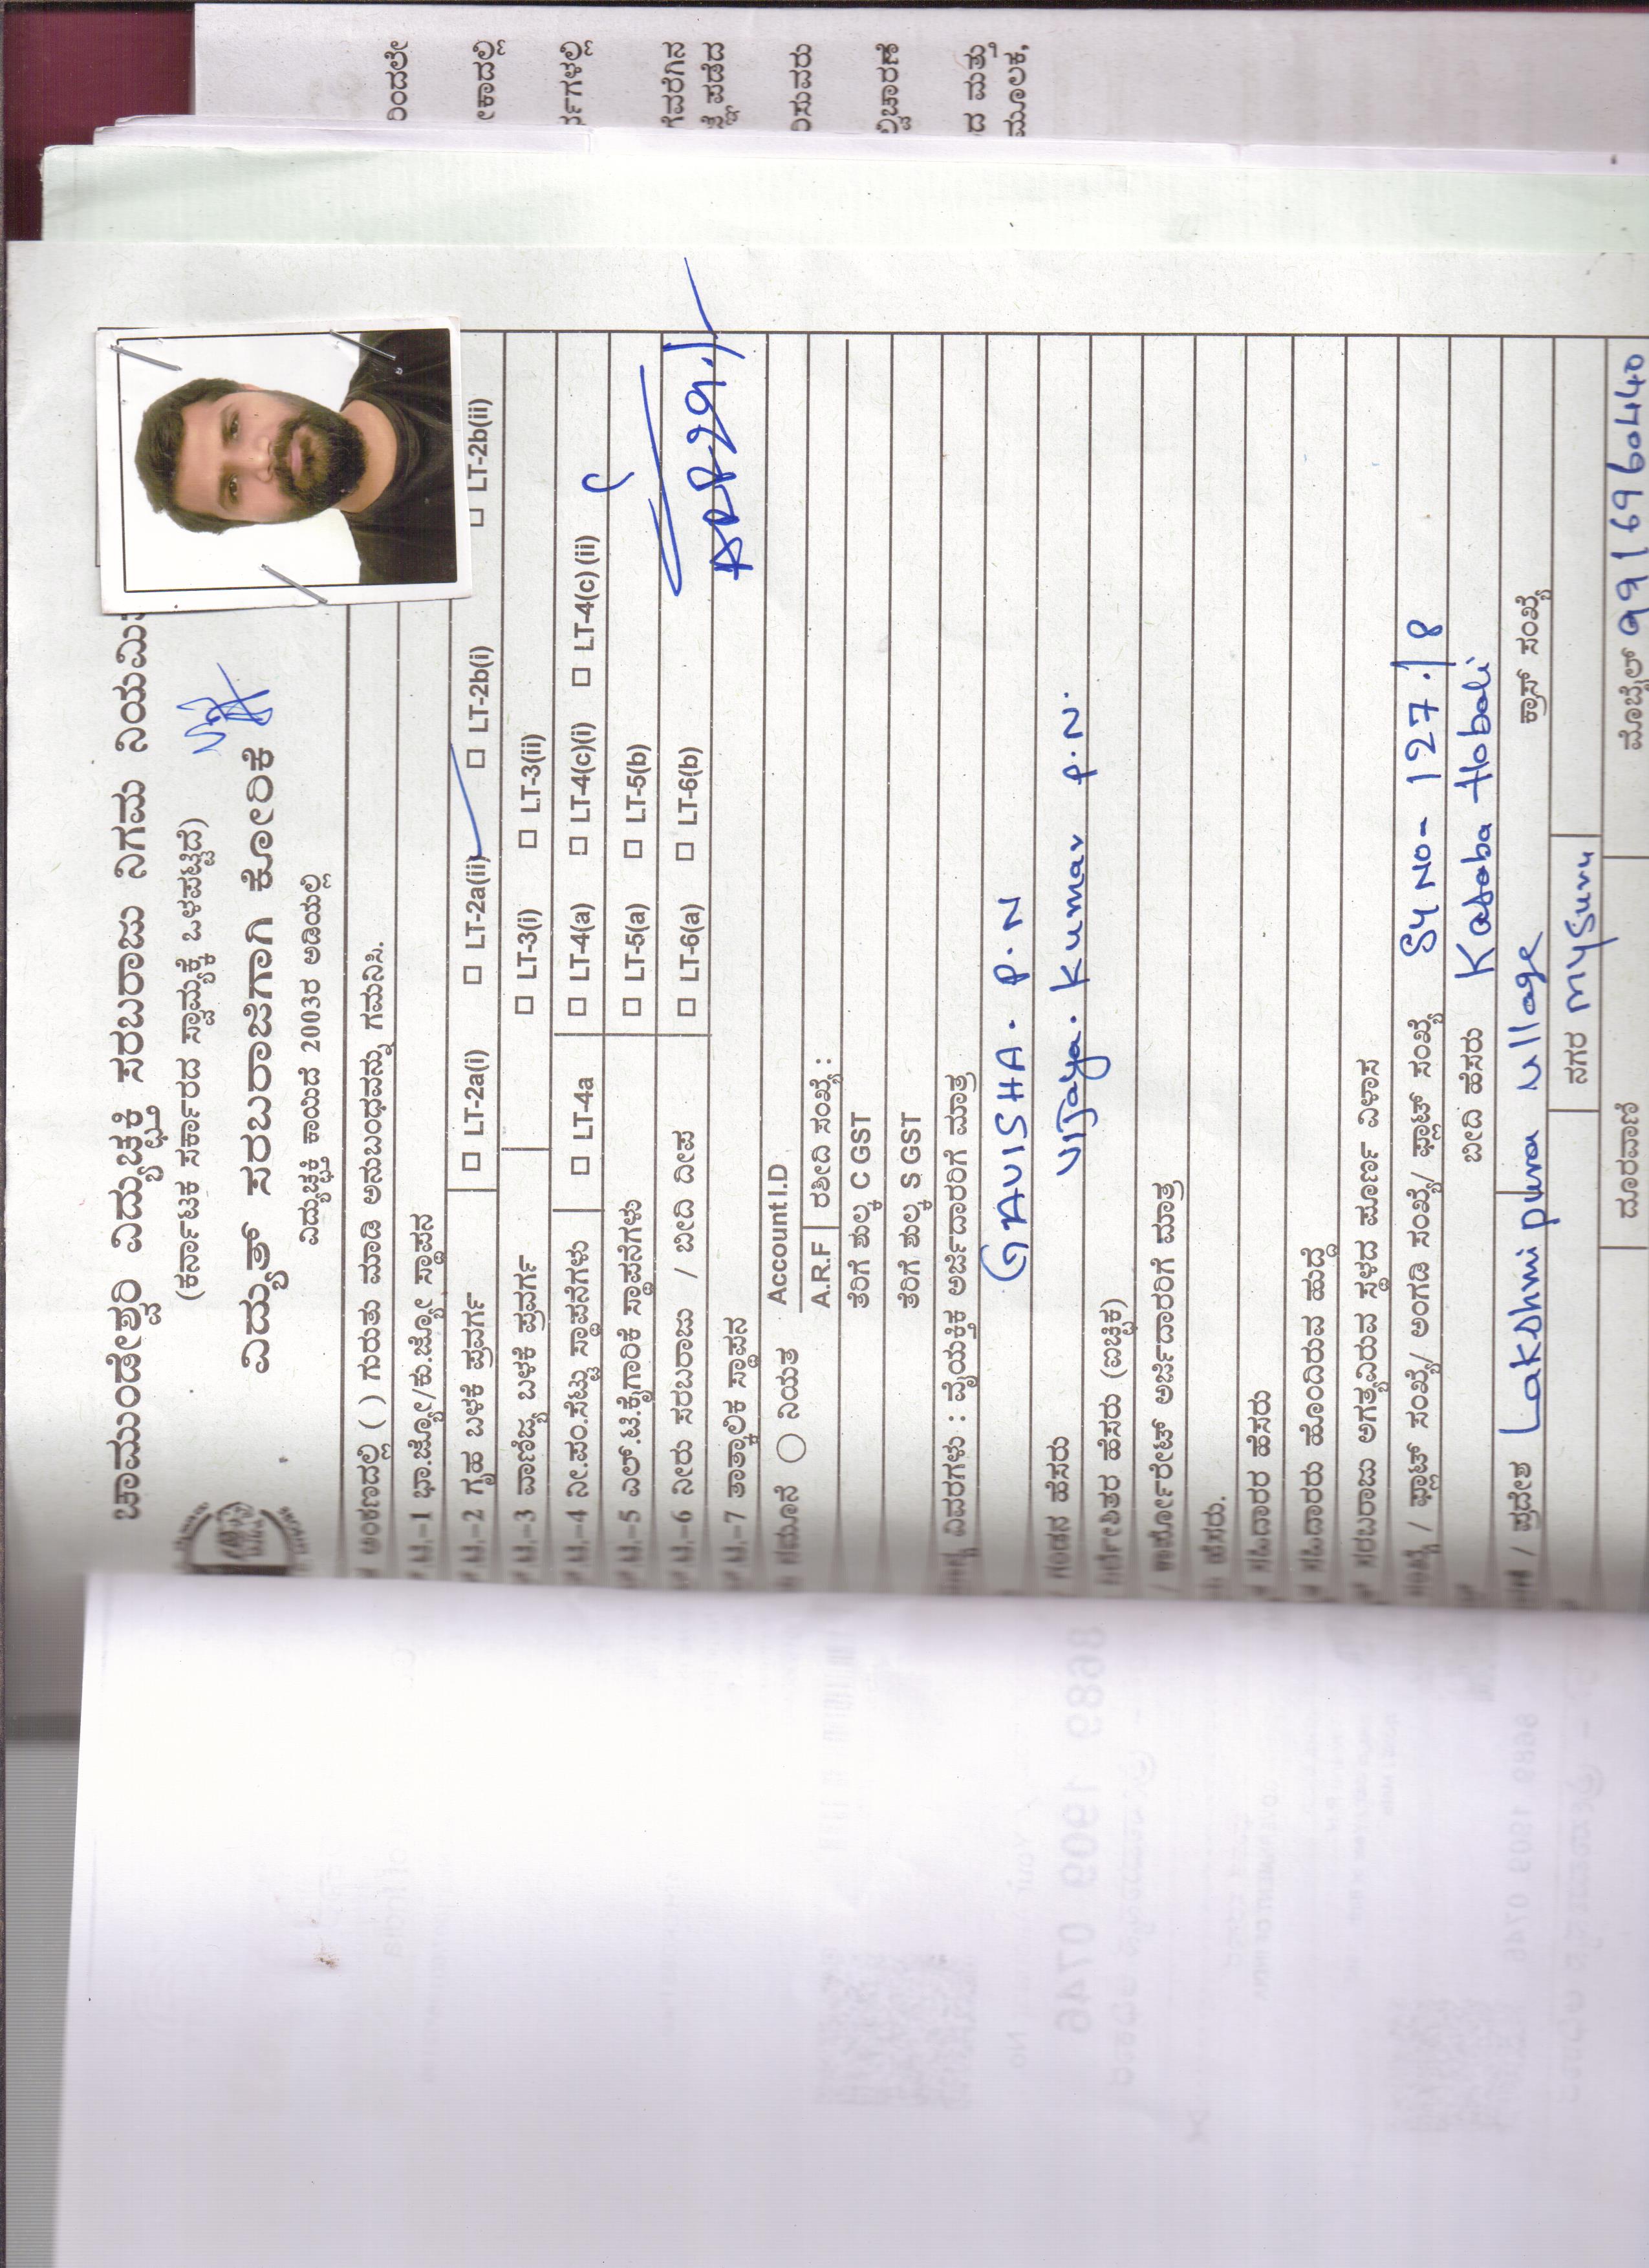 ರಿಂದಲೇ
ೇಕಾದಲ್ಲಿ
ರ್ಗಗಳಲ್ಲಿ
ಗೆವರೆಗಿನ
ಪಡೆದ
ಿಸುವರು
ವಿಚಾರಣೆ
ದ ಮತ್ತು
ಮೂಲಕ,
ಚಾಮುಂಡೇಶ್ವರಿ ವಿದ್ಯುಚ್ಛಕ್ತಿ ಸರಬರಾಜು ನಿಗಮ ನಿಯಮಿ
(ಕರ್ನಾಟಕ ಸರ್ಕಾರದ ಸ್ವಾಮ್ಯಕ್ಕೆ ಒಳಪಟ್ಟಿದೆ)
ವಿದ್ಯುತ್ ಸರಬರಾಜಿಗಾಗಿ ಕೋರಿಕೆ
ವಿದ್ಯುಚ್ಛಕ್ತಿ ಕಾಯಿದೆ 2003ರ ಅಡಿಯಲ್ಲಿ
ಅಂಕಣದಲ್ಲಿ ( ) ಗುರುತು ಮಾಡಿ ಅನುಬಂಧವನ್ನು ಗಮನಿಸಿ.
ಟಿ.-1 ಭಾ.ಜ್ಯೋ/ಕು.ಜ್ಯೋ ಸ್ಥಾಪನ
ಟಿ.-2 ಗೃಹ ಬಳಕೆ ಪ್ರವರ್ಗ ☐ LT-2a(i) ☐ LT-2a(ii) ☐ LT-2b(i) ☐ LT-2b(ii)
ಟಿ.-3 ವಾಣಿಜ್ಯ ಬಳಕೆ ಪ್ರವರ್ಗ ☐ LT-3(i) ☐ LT-3(ii)
ಟಿ.-4 ನೀ.ಪಂ.ಸೆಟ್ಟು ಸ್ಥಾಪನೆಗಳು ☐ LT-4a ☐ LT-4(a) ☐ LT-4(c)(i) ☐ LT-4(c) (ii)
ಟಿ.-5 ಎಲ್.ಟಿ.ಕೈಗಾರಿಕೆ ಸ್ಥಾಪನೆಗಳು ☐ LT-5(a) ☐ LT-5(b)
ಟಿ.-6 ನೀರು ಸರಬರಾಜು / ಬೀದಿ ದೀಪ ☐ LT-6(a) ☐ LT-6(b)
ಟಿ.-7 ತಾತ್ಕಾಲಿಕ ಸ್ಥಾಪನ
ನಮೂನೆ ○ ನಿಯತ Account I.D
A.R.F ರಶೀದಿ ಸಂಖ್ಯೆ :
ತೆರಿಗೆ ಶುಲ್ಕ C GST
ತೆರಿಗೆ ಶುಲ್ಕ S GST
ವಿವರಗಳು : ವೈಯಕ್ತಿಕ ಅರ್ಜಿದಾರರಿಗೆ ಮಾತ್ರ
GAVISHA. P.N
ಗಂಡನ ಹೆಸರು Vijaya. Kumar P.N.
ಹೆಸರು (ಐಚ್ಛಿಕ)
/ ಕಾರ್ಪೋರೇಟ್ ಅರ್ಜಿದಾರರಿಗೆ ಮಾತ್ರ
ಹೆಸರು.
ಸಹಿದಾರರ ಹೆಸರು
ಸಹಿದಾರರು ಹೊಂದಿರುವ ಹುದ್ದೆ
ಸರಬರಾಜು ಅಗತ್ಯವಿರುವ ಸ್ಥಳದ ಪೂರ್ಣ ವಿಳಾಸ
ಸಂಖ್ಯೆ / ಫ್ಲಾಟ್ ಸಂಖ್ಯೆ/ ಅಂಗಡಿ ಸಂಖ್ಯೆ/ ಫ್ಲಾಟ್ ಸಂಖ್ಯೆ Sy NO- 127/8
ಬೀದಿ ಹೆಸರು Kasaba Hobali
/ ಪ್ರದೇಶ Lakshmipura Village ಕ್ರಾಸ್ ಸಂಖ್ಯೆ
ನಗರ Mysuru
ದೂರವಾಣಿ ಮೊಬೈಲ್ 9916960440
8689 1909 0746
8689 1909 0746